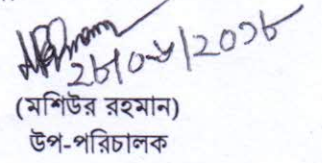 ২৮/০৮/২০১৮
(মশিউর রহমান)
উপ-পরিচালক